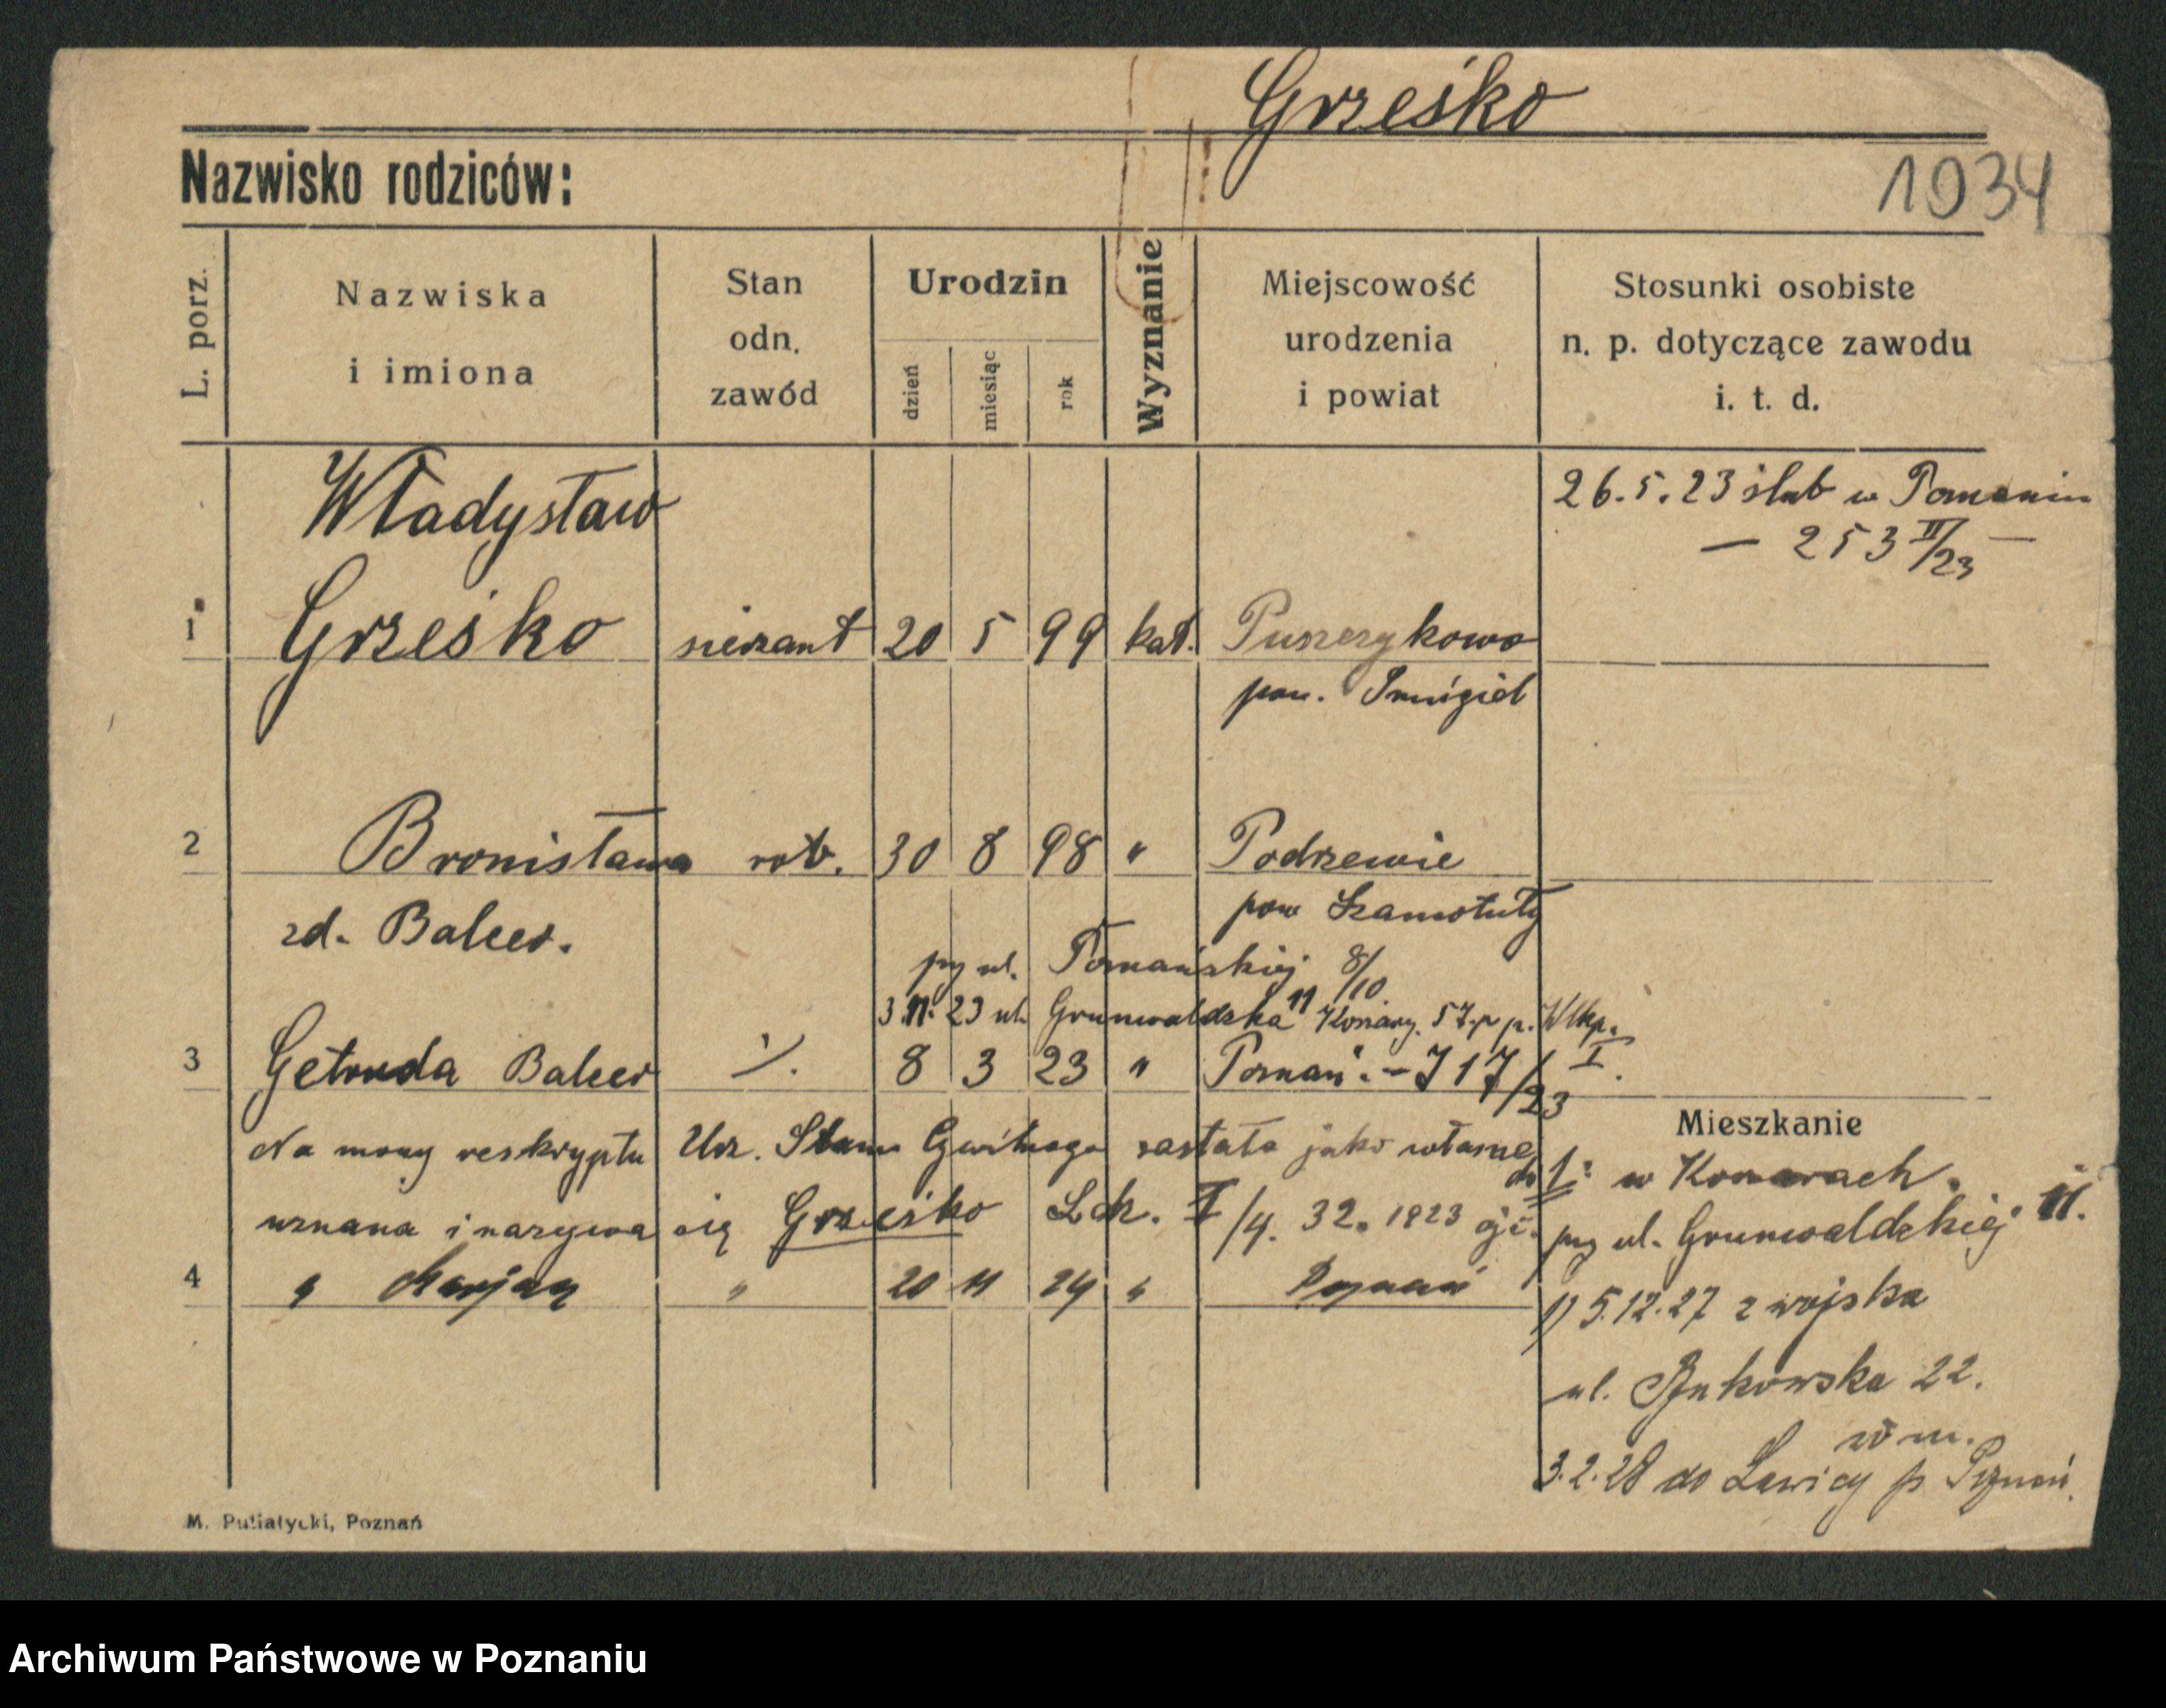 Grześko
Nazwisko rodziców:
1034
L. porz.
Nazwiska
i imiona
Stan
odn.
zawód
Urodzin
dzień
miesiąc
rok
Wyznanie
Miejscowość
urodzenia
i powiat
Stosunki osobiste
n. p. dotyczące zawodu
i. t. d.
26.5.23 ślub w Poznaniu
— 253 II/23 —
Władysław
1 Grześko sierżant 20 5 99 kat. Puszczykowo
pow. Śmigiel
2 Bronisława rob. 30 8 98 " Podrzewie
zd. Balcer.
pow Szamotuły
przy ul. Poznańskiej 8/10
3.11.23 ul. Grunwaldzka 11 Koszary. 57. p p. Wlkp.
3 Getruda Balcer ./. 8 3 23 " Poznań. - 717/23 I.
Na mocy reskryptu Urz. Stanu Cywilnego została jako własne
uznana i nazywa się Grześko L.dz. I/4. 32. 1923
4 " Marjan " 20 11 24 " Poznań
Mieszkanie
1: w Konarach.
przy ul. Grunwaldzkiej 11.
1) 5.12.27 z wojska
ul. Bukowska 22.
w m.
3.2.28 do Ławicy p. Poznań.
M. Putiatycki, Poznań
Archiwum Państwowe w Poznaniu